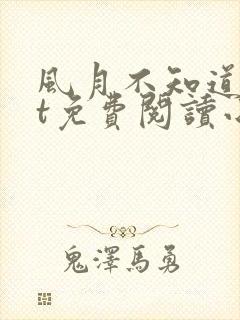 風月不知道
t免費閱讀
鬼澤馬勇